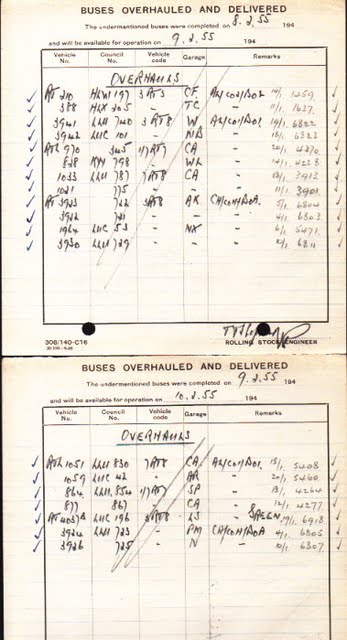 BUSES OVERHAULED AND DELIVERED
The undermentioned buses were completed on 8.2.55 194
and will be available for operation on 9.2.55 194
Vehicle No. Council No. Vehicle code Garage Remarks
OVERHAULS
AT 210 197 3AT3 CF 14/1 1259
388 HLX 205 - TC 11/1 1637
3941 LLU 740 3AT8 W 19/1 6822
3942 LUC 101 - NB 18/1 6823
970 345 1/7AT7 CA 20/1 4270
828 KYY 798 - WL 14/1 4228
1033 LLU 787 7AT8 CA 3913
1021 775 - - 11/1 3901
AT 3923 722 3AT8 AK 5/1 6804
3922 721 - - 4/1 6803
1964 LUC 53 - NX 6/1 5471
3930 LLU 729 - - 10/1 6811
308/140-C16
ROLLING STOCK ENGINEER
BUSES OVERHAULED AND DELIVERED
The undermentioned buses were completed on 9.2.55 194
and will be available for operation on 10.2.55 194
Vehicle No. Council No. Vehicle code Garage Remarks
OVERHAULS
1051 LLU 830 7AT8 CA 18/1 5408
1059 LUC 42 - AR 20/1 5460
864 LLU 854 1/7AT7 SP 13/1 4264
877 867 - CA 12/1 4277
AT 4037 LUC 196 3AT8 LS GREEN 19/1 6918
3924 LLU 723 - PM 4/1 6805
3926 725 - N 10/1 6807